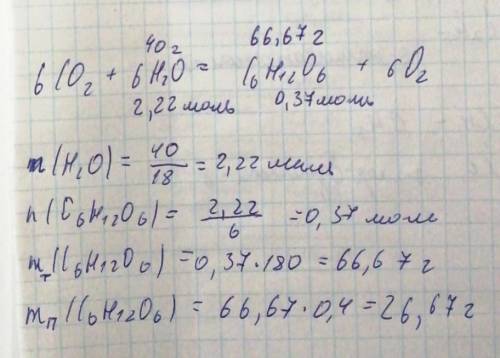 40 г 66,67 г
6CO₂ + 6H₂O = C₆H₁₂O₆ + 6O₂
2,22 моль 0,37 моль
n(H₂O) = 40/18 = 2,22 моль
n(C₆H₁₂O₆) = 2,22/6 = 0,37 моль
mт(C₆H₁₂O₆) = 0,37·180 = 66,67 г
mп(C₆H₁₂O₆) = 66,67·0,4 = 26,67 г